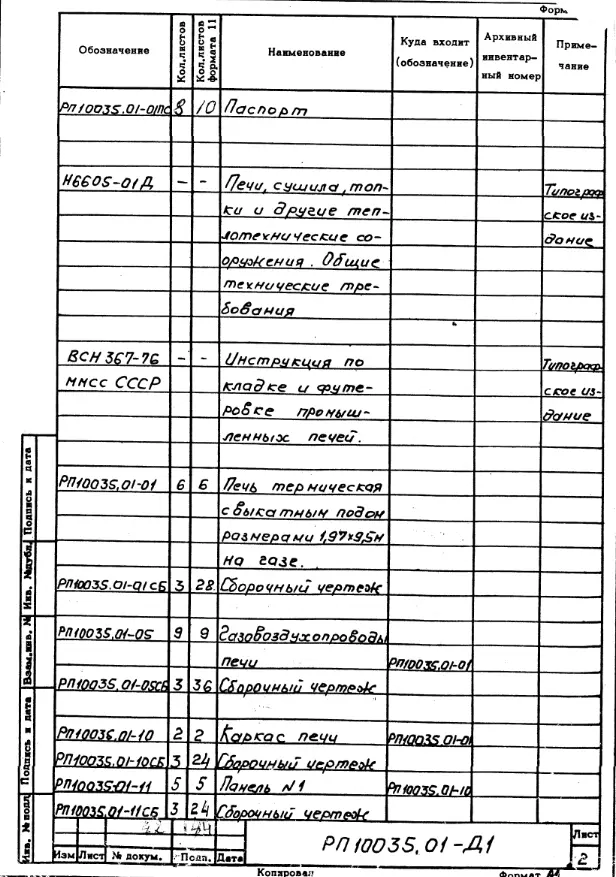 Форм
Обозначение Кол.листов Кол.листов формата 11 Наименование Куда входит (обозначение) Архивный инвентарный номер Примечание
РП10035.01-01ПС 8 10 Паспорт
Н6605-01Д - - Печи, сушила, топ-
ки и другие теп- Типограф
лотехнические со- ское из-
оружения. Общие дание
технические тре-
бования
ВСН 367-76 - - Инструкция по Типограф
ММСС СССР кладке и футе- ское из-
ровке промыш- дание
ленных печей.
РП10035.01-01 6 6 Печь термическая
с выкатным подом
размерами 1,97х9,5м
на газе.
РП10035.01-01СБ 3 28 Сборочный чертеж
РП10035.01-05 9 9 Газовоздухопроводы
печи РП10035.01-01
РП10035.01-05СБ 3 36 Сборочный чертеж
РП10035.01-10 2 2 Каркас печи РП10035.01-01
РП10035.01-10СБ 3 24 Сборочный чертеж
РП10035.01-11 5 5 Панель №1 РП10035.01-10
РП10035.01-11СБ 3 24 Сборочный чертеж
Подпись и дата
Инв. №дубл.
Взам.инв. №
Подпись и дата
Инв. №подл
42 144
Изм Лист № докум. Подп. Дата
РП10035.01-Д1
Лист
2
Копировал Формат А4